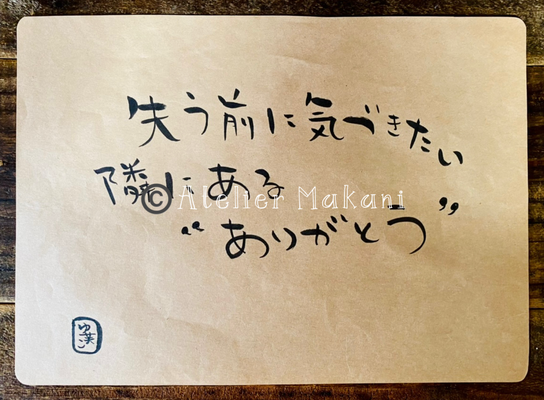 失う前に気づきたい
隣にある
“ありがとう”
© Atelier Makani